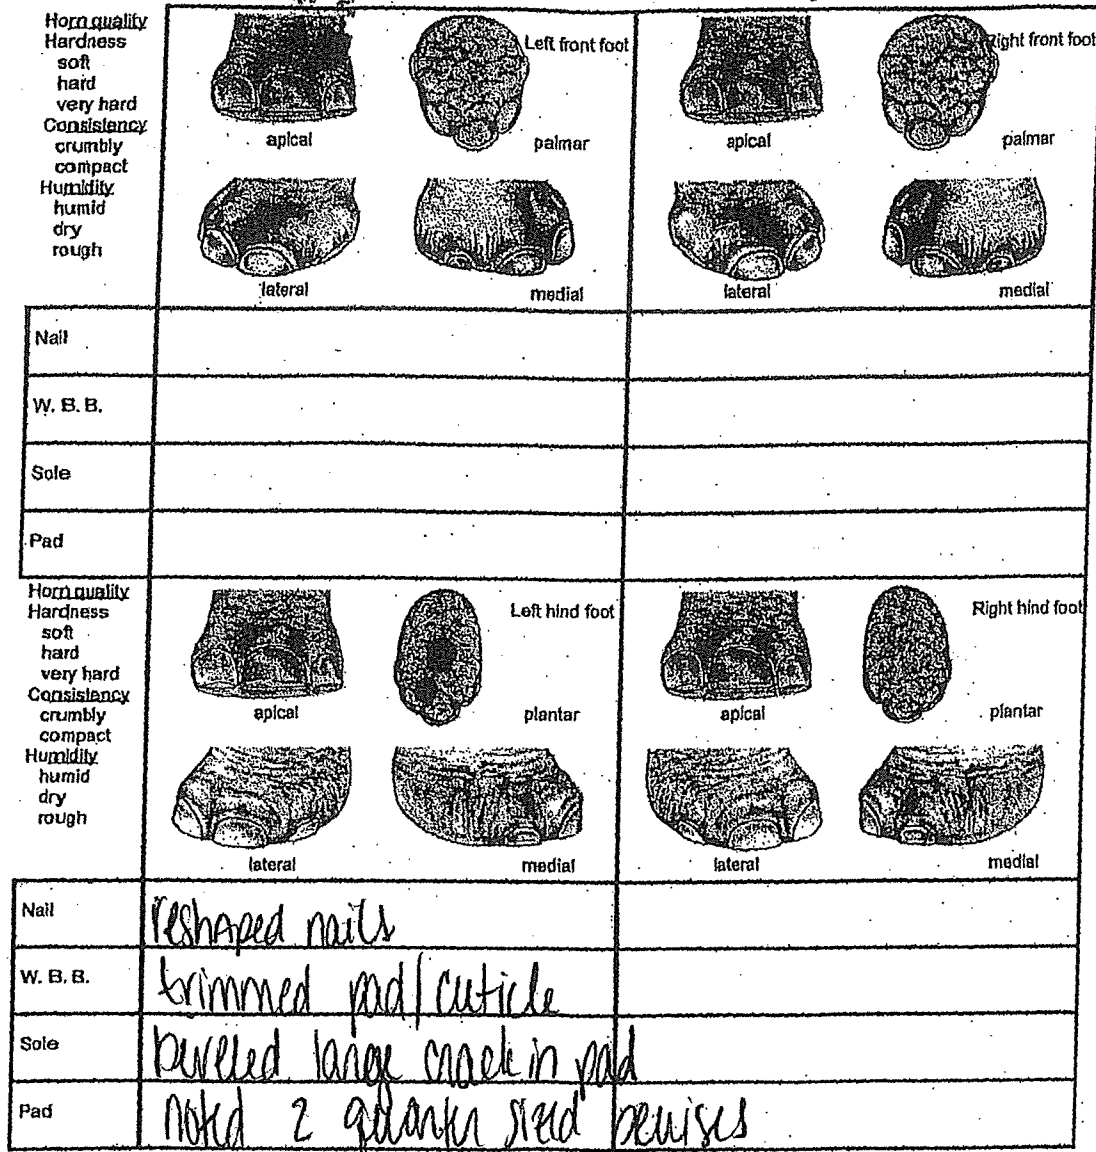 Horn quality
Hardness
soft
hard
very hard
Consistency
crumbly
compact
Humidity
humid
dry
rough
Left front foot
apical
palmar
lateral
medial
Right front foot
apical
palmar
lateral
medial
Nail
W. B. B.
Sole
Pad
Horn quality
Hardness
soft
hard
very hard
Consistency
crumbly
compact
Humidity
humid
dry
rough
Left hind foot
apical
plantar
lateral
medial
Right hind foot
apical
plantar
lateral
medial
Nail reshaped nails
W. B. B. trimmed pad/cuticle
Sole beveled large crack in pad
Pad noted 2 quarter sized bruises